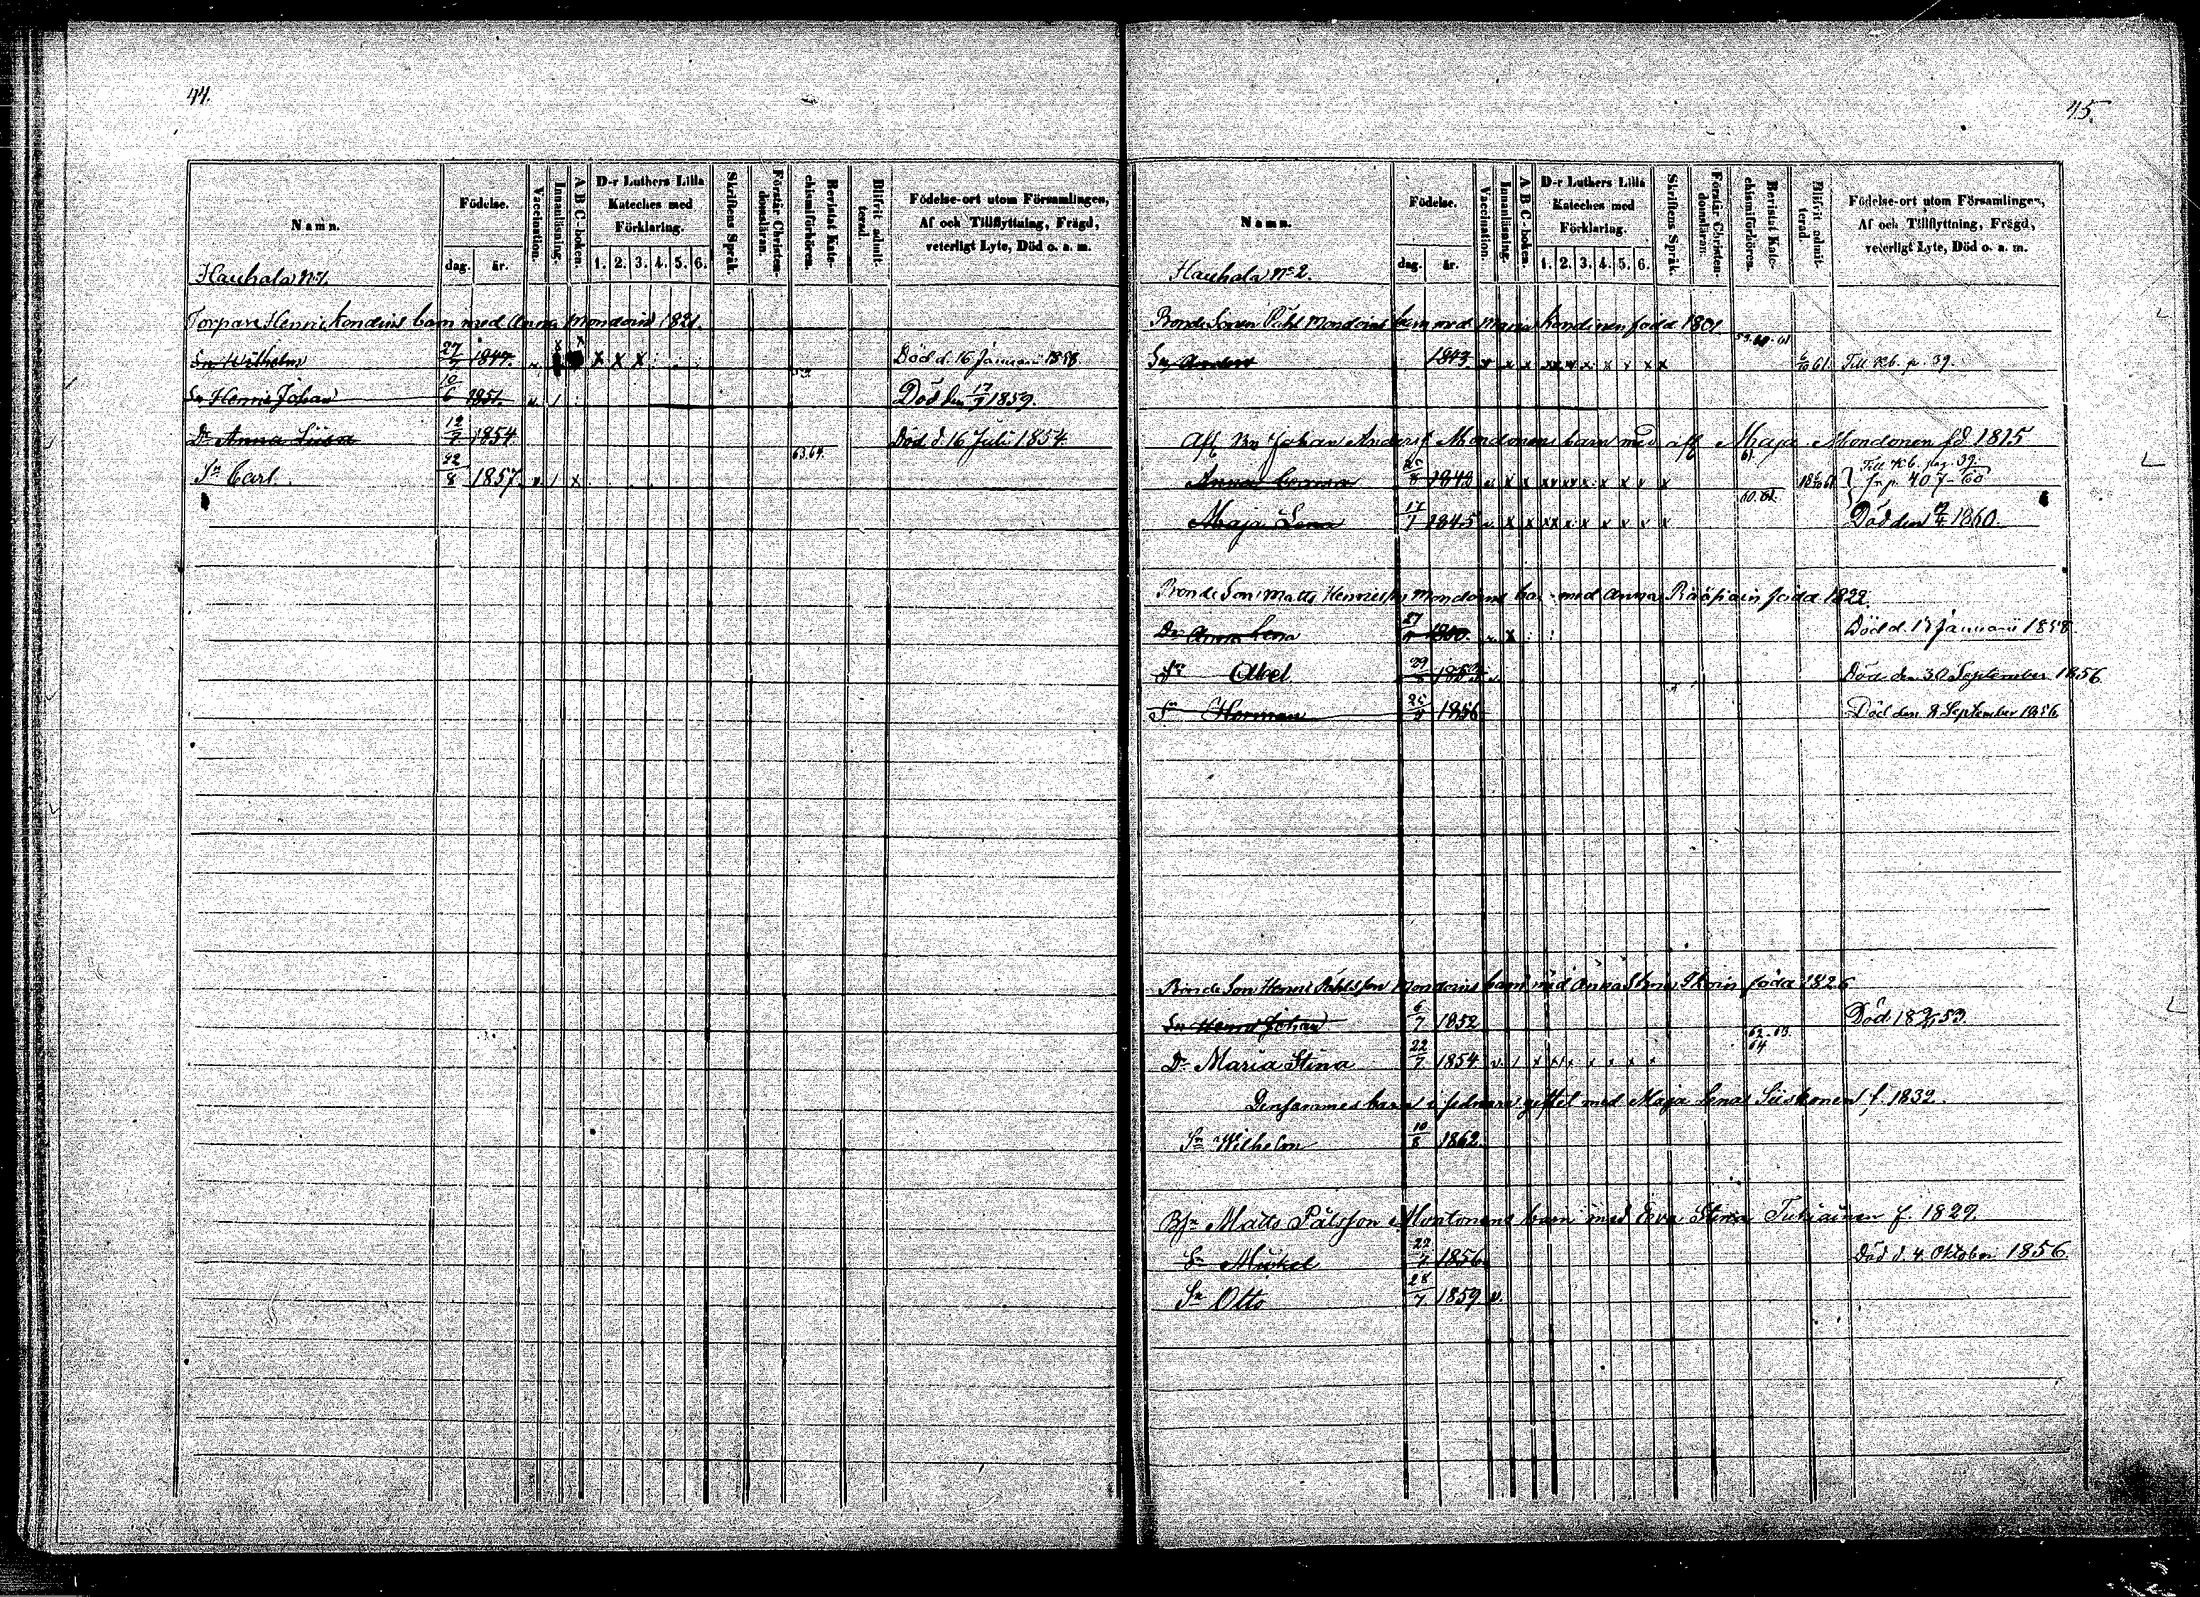 44.
Namn.
Födelse.
dag. år.
Vaccination.
Innanläsning.
A B C-boken.
D-r Luthers Lilla Kateches med Förklaring.
1. 2. 3. 4. 5. 6.
Skriftens Språk.
Förstår Christendomsläran.
Bevistat Katechismiförhören.
Blifvit admitterad.
Födelse-ort utom Församlingen,
Af och Tillflyttning, Frägd,
veterligt Lyte, Död o. a. m.
Hauhala No 1.
Torpare Henric Kondins barn med Anna Mondoin 1821.
Sn Wilhelm 27 1847. Död d. 16 Januarii 1858
Sn Henric Johan 10/6 1851. Död den 17/7 1859.
Dr Anna Liisa 12/7 1854 Död d. 16 Juli 1854.
63.64.
Sn Carl 22/8 1857.
45.
Namn.
Födelse.
dag. år.
Vaccination.
Innanläsning.
A B C-boken.
D-r Luthers Lilla Kateches med Förklaring.
1. 2. 3. 4. 5. 6.
Skriftens Språk.
Förstår Christendomsläran.
Bevistat Katechismiförhören.
Blifvit admitterad.
Födelse-ort utom Församlingen,
Af och Tillflyttning, Frägd,
veterligt Lyte, Död o. a. m.
Hauhala No 2.
Bonde Sonen Påhl Mondoins barn med Maria Kondinen född 1801
59.60.61
Sn Anders 1843 61. Till Kb. p. 39.
Afl. Johan Anders Mondonens barn med afl Maja Mondonen fd. 1815
Anna 1843 Till Kb. pag. 39
Maja Lena 17/7 1845 60.61. Död den 1860.
Bonde Son Matts Henricsson Mondoins barn med Anna Rääpäin född 1822.
Dr Anna Lena 27 1850. Död d. 13 Januarii 1858.
Sn Abel 29 1853 Död den 30 September 1856
Sn Herman 25 1856 Död den 8 September 1856
Bonde Son Henric Påhlsson Mondoins barn med Anna Stina Ikoin född 1826
Sn Henric Johan 6/7 1852 Död 53.
62.63.
64
Dr Maria Stina 22/7 1854
Densammes barn i sednare giftet med Maja Lena Siiskonen f. 1832.
Sn Wilhelm 10/8 1862.
Bsn Matts Pålsson Montonens barn med Eva Stina Tukiainen f. 1829.
Sn Mickel 22 1856 Död d. 4 Oktober 1856
Sn Otto 28/7 1859 v.